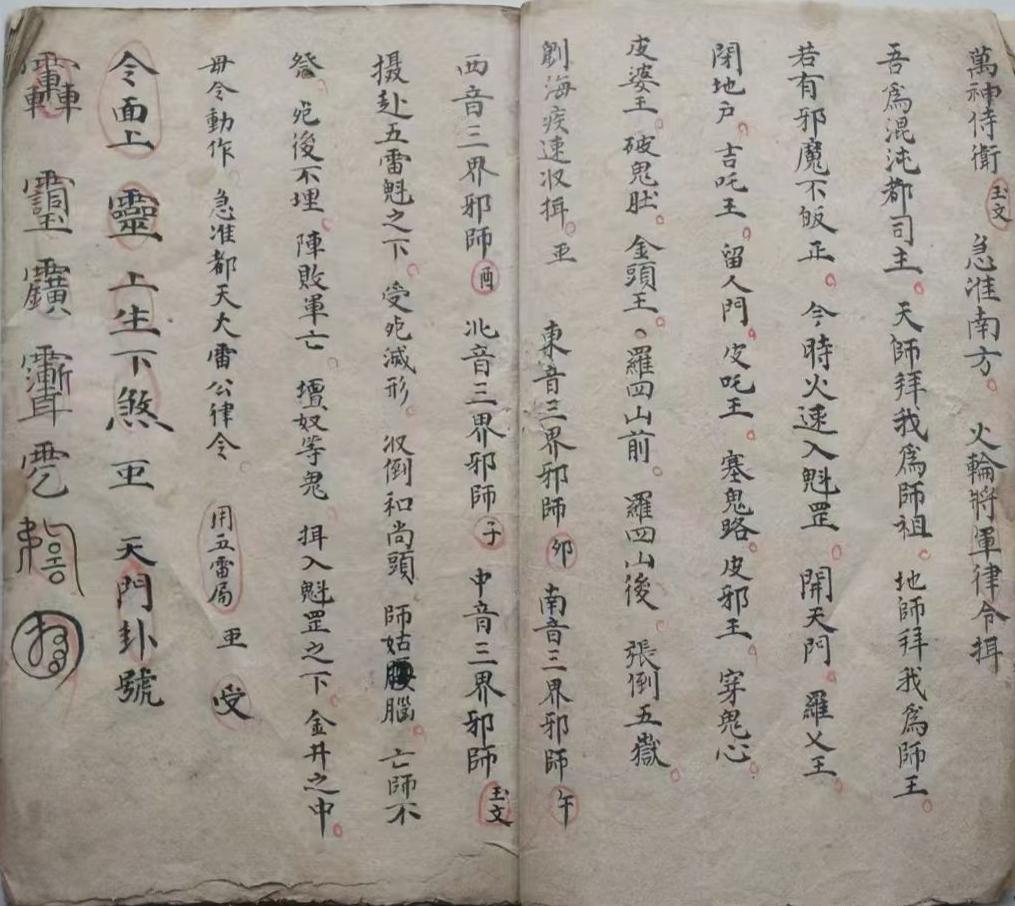 萬神侍衛 玉文 急准南方。火輪將軍律令揖
吾為混沌都司主。天師拜我為師祖。地師拜我為師王。
若有邪魔不皈正。今時火速入魁罡。開天門。羅乂王。
閉地户。吉吒王。留人門。皮吒王。塞鬼路。皮邪王。穿鬼心。
皮婆王。破鬼肚。金頭王。羅四山前。羅四山後。張倒五嶽。
劊海疾速收揖。亚 東音三界邪師 卯 南音三界邪師 午
西音三界邪師 酉 北音三界邪師 子 中音三界邪師 玉文
摄赴五雷魁之下。受死滅形。収倒和尚頭 師姑腦。亡師不
祭。死後不埋。陣敗軍亡。壇奴等鬼。揖入魁罡之下。金井之中。
毋令動作。急准都天大雷公律令。用五雷局 亚 受
令面上 靈 上生下煞 亚 天門卦號